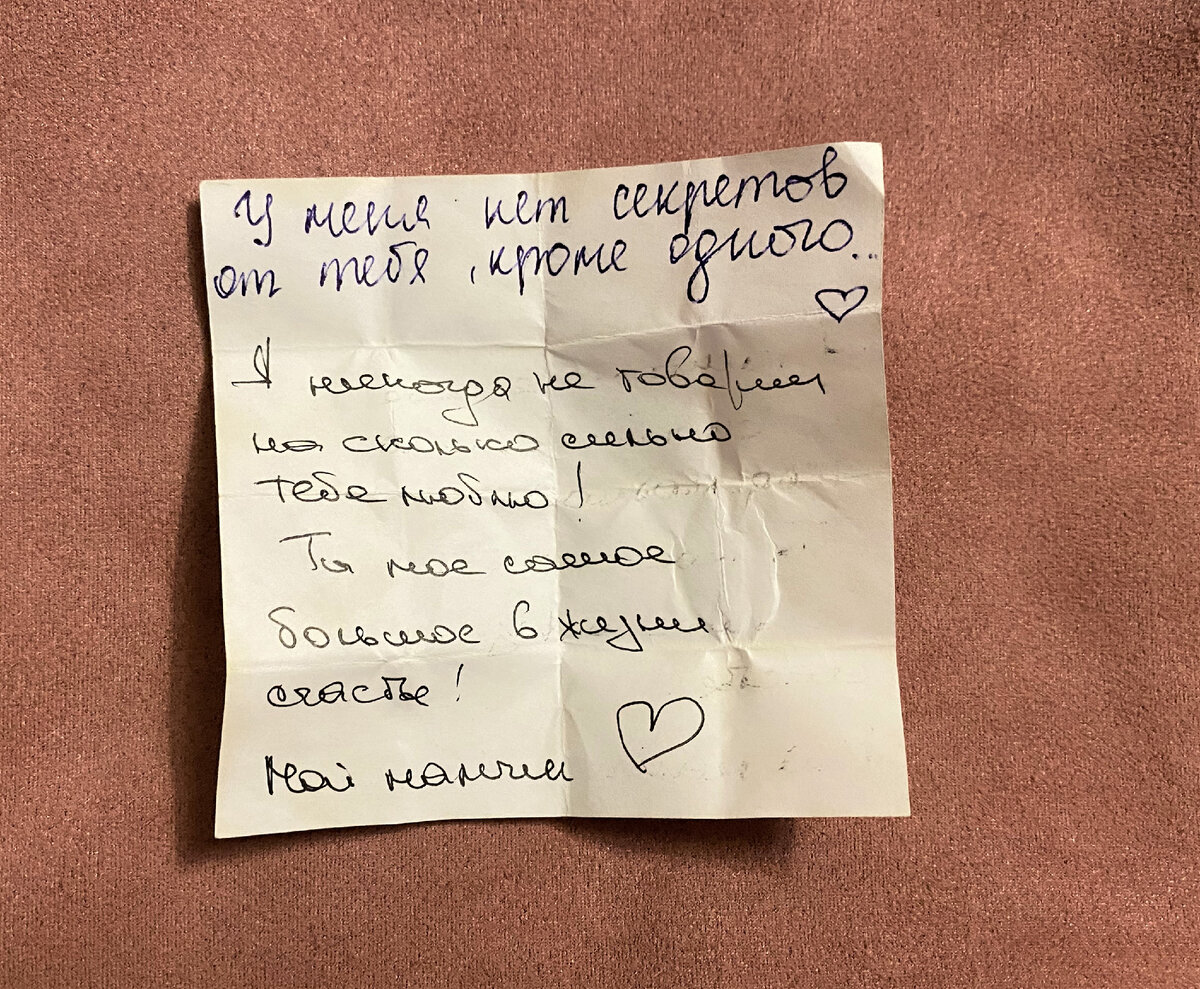 У меня нет секретов
от тебя, кроме одного...
Я никогда не говорил
на сколько сильно
тебе люблю!
Ты мое самое
большое в жизни
счастье!
Мой